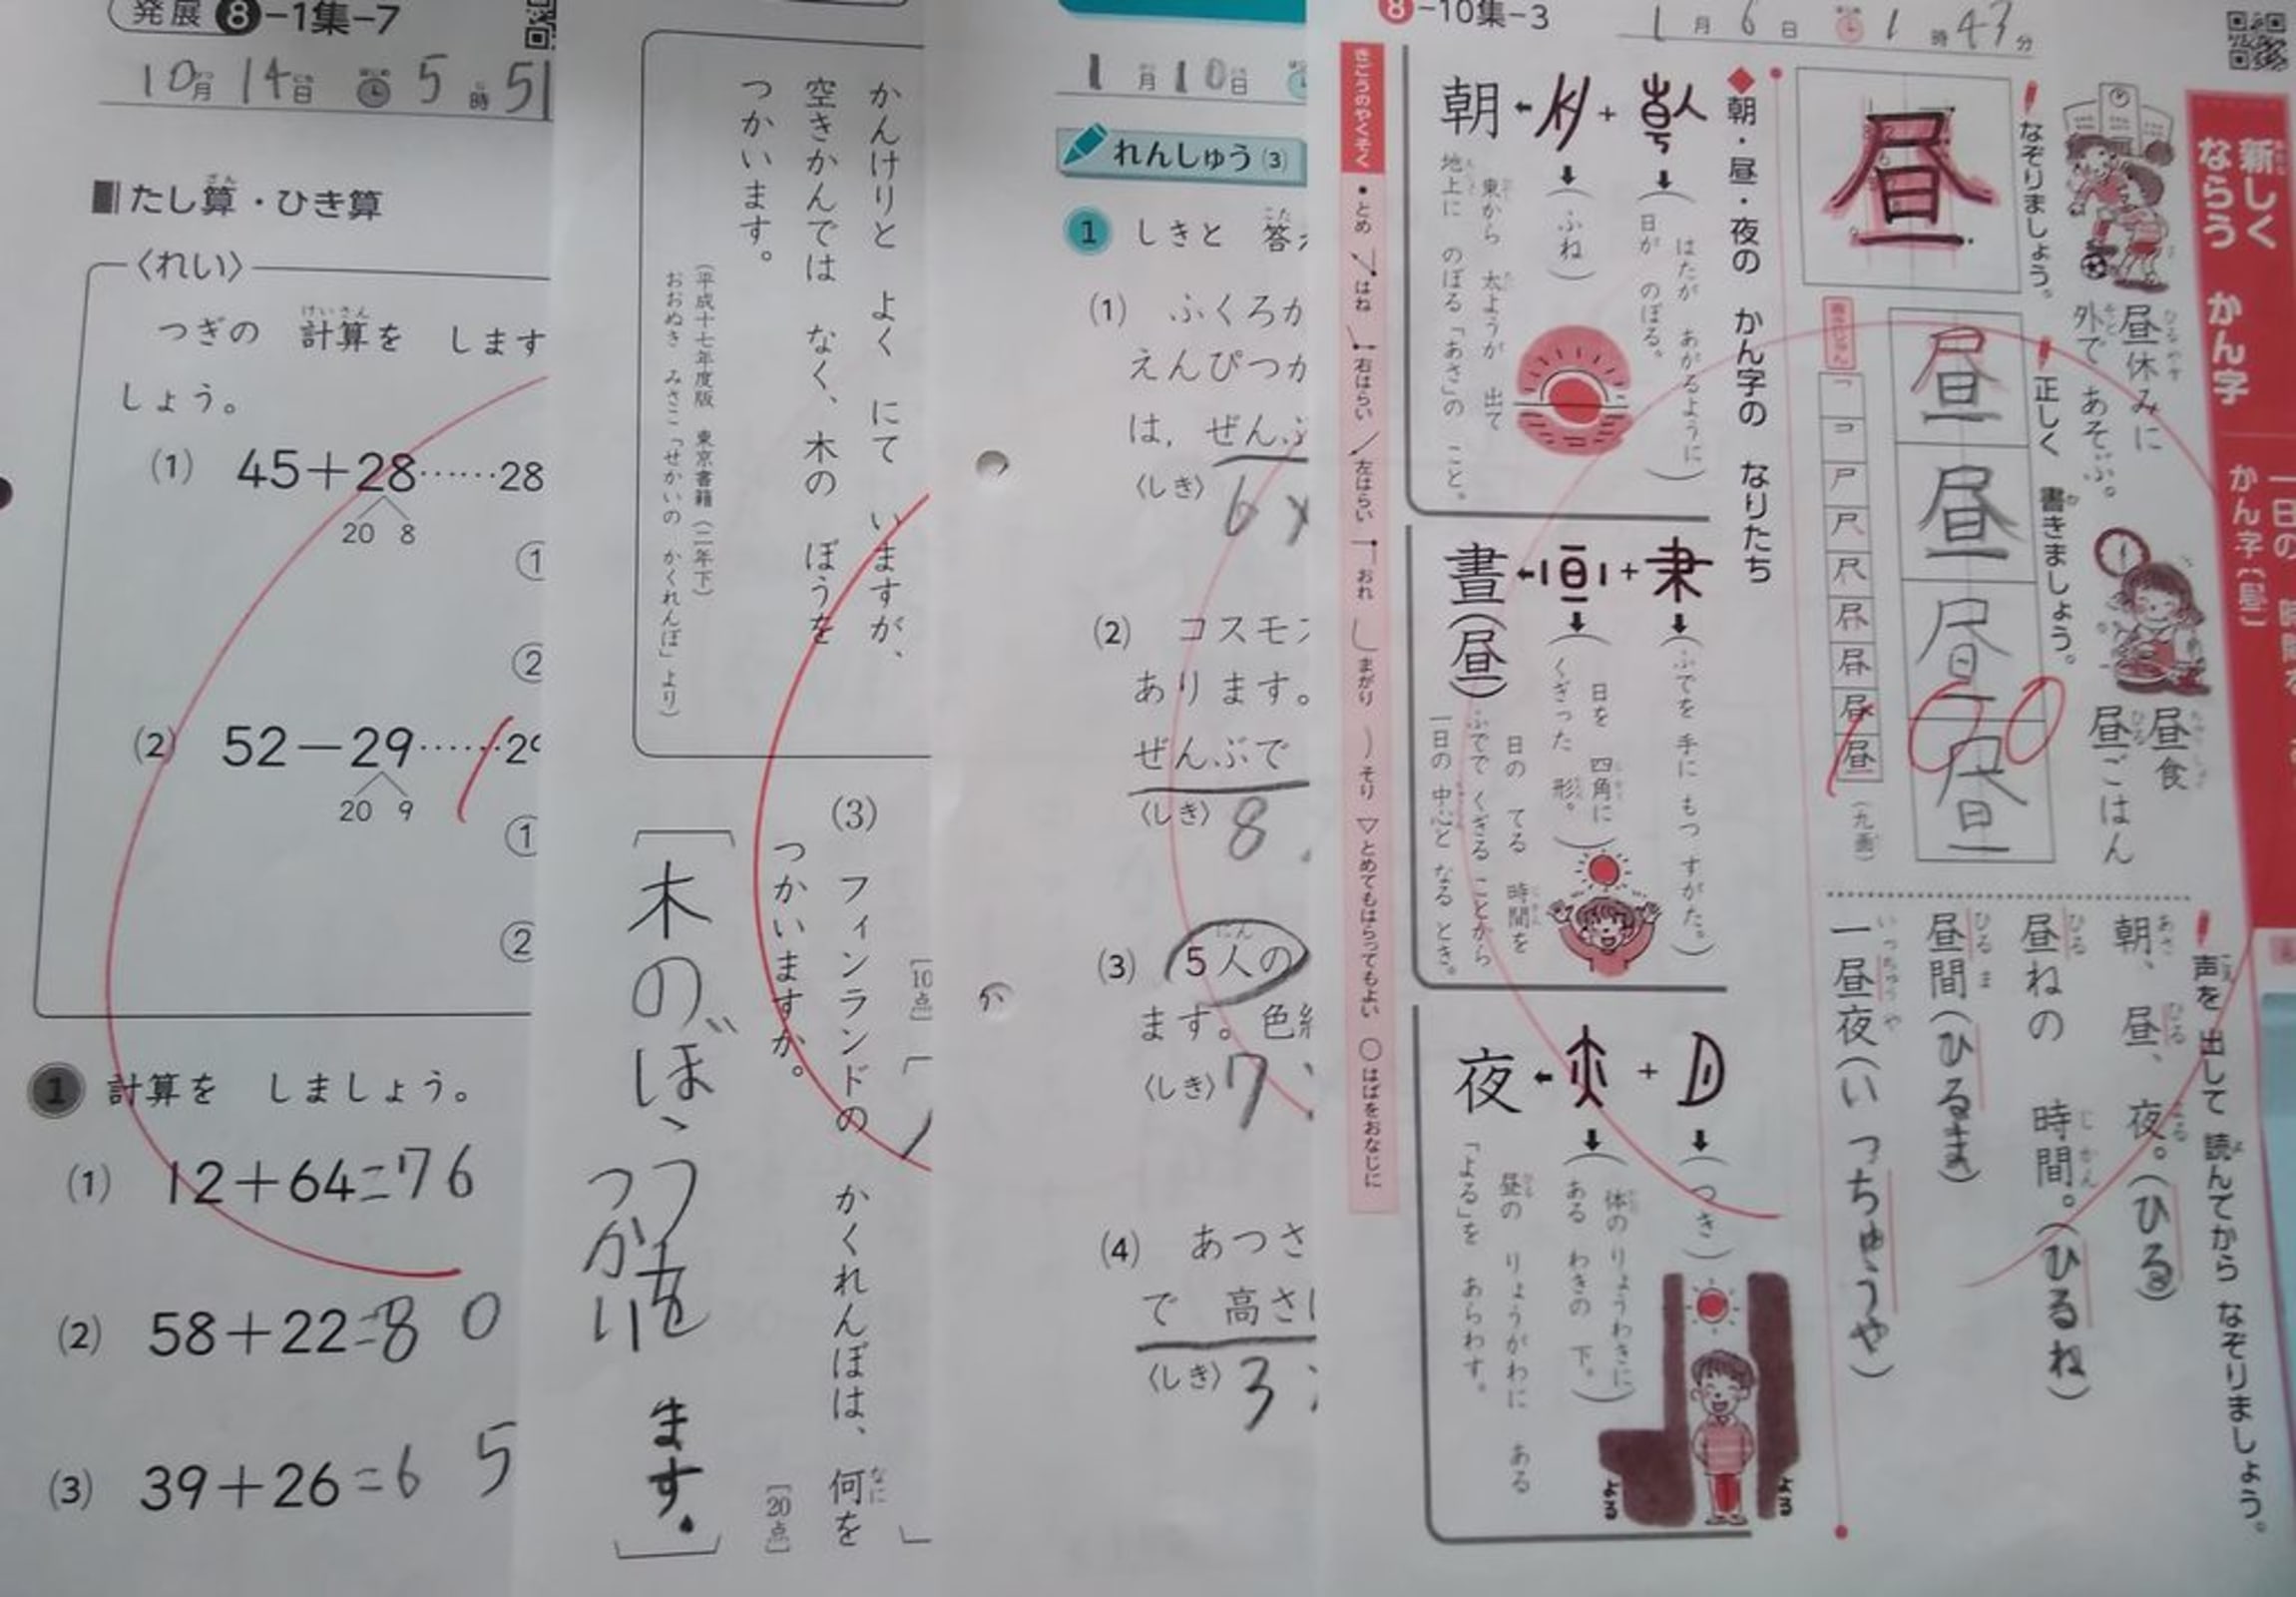 発展 8-1集-7
10月14日 5時51
たし算・ひき算
〈れい〉
つぎの 計算を します
しょう。
(1) 45+28……28
20 8
①
②
(2) 52-29……29
20 9
①
②
1 計算を しましょう。
(1) 12+64=76
(2) 58+22=80
(3) 39+26=65
かんけりと よく にて いますが、
空きかんでは なく、木の ぼうを
つかいます。
(平成十七年度版 東京書籍(二年下)
おおぬき みさこ「せかいの かくれんぼ」より)
[10点]
(3) フィンランドの かくれんぼは、何を
つかいますか。
[20点]
木のぼうを
つかいます。
1月10日
れんしゅう(3)
1 しきと 答
(1) ふくろか
えんぴつか
は, ぜんぶ
〈しき〉 6×
(2) コスモス
あります。
ぜんぶで
〈しき〉 8
(3) 5人の
ます。色
〈しき〉 7
(4) あつさ
で 高さ
〈しき〉 3
8-10集-3
1月6日 1時43分
新しく
ならう かん字
かん字〔昼〕
なぞりましょう。
昼
昼休みに
外で あそぶ。
正しく 書きましょう。
昼
昼
昼
昼
100
(九画)
昼食
昼ごはん
声を 出して 読んでから なぞりましょう。
朝、昼、夜。(ひる)
昼ねの 時間。(ひるね)
昼間(ひるま)
一昼夜(いっちゅうや)
朝・昼・夜の かん字の なりたち
(はたが あがるように
日が のぼる。)
(ふね)
朝
東から 太ようが 出て
地上に のぼる「あさ」の こと。
(ふでを 手に もつ すがた。)
(日を 四角に
くぎった 形。)
晝(昼)
日の てる 時間を
ふでで くぎる ことから
一日の 中心と なる とき。
(つき)
(体の りょうわきに
ある わきの 下。)
夜
昼の りょうがわに ある
「よる」を あらわす。
よる
よる
きごうのやくそく
•とめ はね 右はらい 左はらい おれ まがり そり ▽とめてもはらってもよい ○はばをおなじに